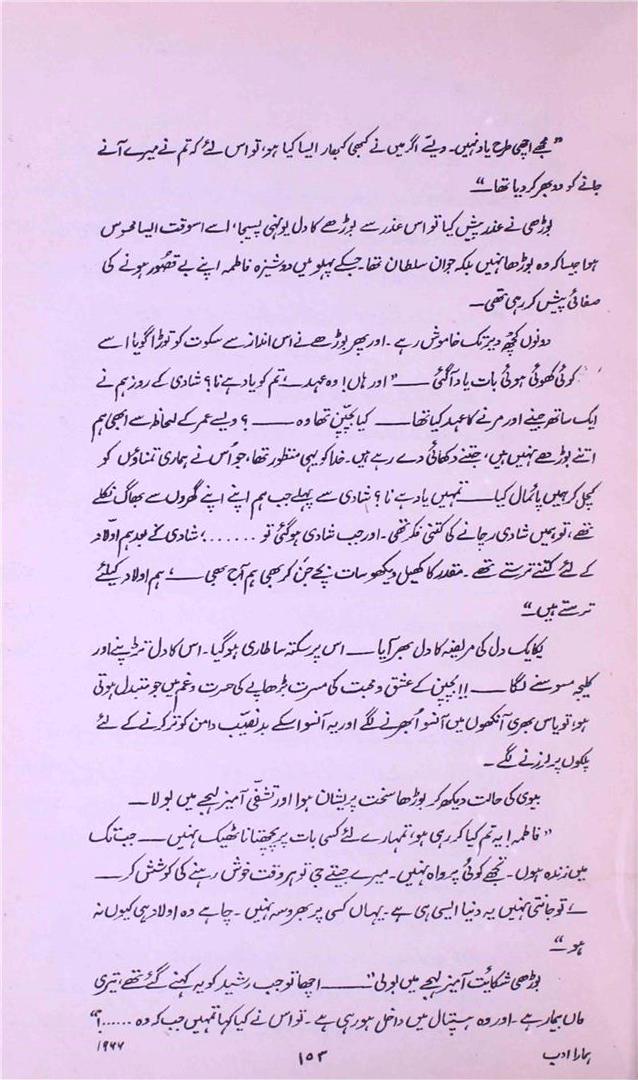 ”مجھے اچھی طرح یاد نہیں۔ ویسے اگر میں نے کبھی کبھار ایسا کیا ہو، تو اس لئے کہ تم نے میرے آنے
جانے کو دوبھر کر دیا تھا۔“
بوڑھی نے عذر پیش کیا تو اس عذر سے بوڑھے کا دل یونہی پسیجا، اسے اسوقت ایسا محسوس
ہوا جیسا کہ وہ بوڑھا نہیں بلکہ جوان سلطان تھا۔ جسکے پہلو میں دوشیزہ فاطمہ اپنے بے قصُور ہونے کی
صفائی پیش کر رہی تھی۔
دونوں کچُھ دیر تک خاموش رہے۔ اور پھر بوڑھے نے اس انداز سے سکوت کو توڑا گویا اسے
کوئی کھوئی ہوئی بات یاد آگئی — ”اور ہاں! وہ عہد۔؛ تم کو یاد ہے نا؟ شادی کے روز ہم نے
ایک ساتھ جینے اور مرنے کا عہد کیا تھا — کیا بچپّن تھا وہ — ؟ ویسے عمر کے لحاظ سے ابھی ہم
اتنے بوڑھے نہیں ہیں، جتنے دکھائی دے رہے ہیں۔ خدا کو یہی منظور تھا، جو اُس نے ہماری تمناؤں کو
کچل کر ہمیں پائمال کیا — تمہیں یاد ہے نا؟ شادی سے پہلے جب ہم اپنے اپنے گھروں سے بھاگ نکلے
تھے، تو ہمیں شادی رچانے کی کتنی فکر تھی۔ اور جب شادی ہو گئی تو ......؛ شادی کے بعد ہم اوّلاد
کے لئے کتنے ترستے تھے۔ مقدر کا کھیل دیکھو سات بچے جن کر بھی ہم آج بھی —؛ ہم اولاد کیلئے
ترستے ہیں“
یکایک دل کی مریضہ کا دل بھر آیا — اس پر سکتہ سا طاری ہو گیا۔ اس کا دل تڑپنے اور
کلیجہ مسوسنے لگا — !!! بچپن کے عشق و محبت کی مسرت بڑھاپے کی حسرت و غم میں جو متبدل ہوتی
ہو، تو یاس بھری آنکھوں میں آنسو اُبھرنے لگے اور یہ آنسو اسکے بدنصیّب دامن کو تر کرنے کے لئے
پلکوں پر لرزنے لگے۔
بیوی کی حالت دیکھ کر بوڑھا سخت پریشان ہوا اور تشفّی آمیز لہجے میں بولا —
”فاطمہ! یہ تم کیا کر رہی ہو، تمہارے لئے کسی بات پر پچھتانا ٹھیک نہیں — جب تک
میں زندہ ہوں۔ تجھے کوئی پرواہ نہیں۔ میرے جیتے جی تو ہر وقت خوش رہنے کی کوشش کر —
تو جانتی نہیں یہ دنیا ایسی ہی ہے۔ یہاں کسی پر بھروسہ نہیں۔ چاہے وہ اولاد ہی کیوں نہ
ہو۔“
بوڑھی شکائت آمیز لہجے میں بولی” — اچھا تو جب رشید کو یہ کہنے گئے تھے، تیری
ماں بیمار ہے۔ اور وہ ہسپتال میں داخل ہو رہی ہے۔ تو اس نے کیا کہا تمہیں جب کہ وہ ......؟“
ہمارا ادب ۱۵۳ ۱۹۶۶